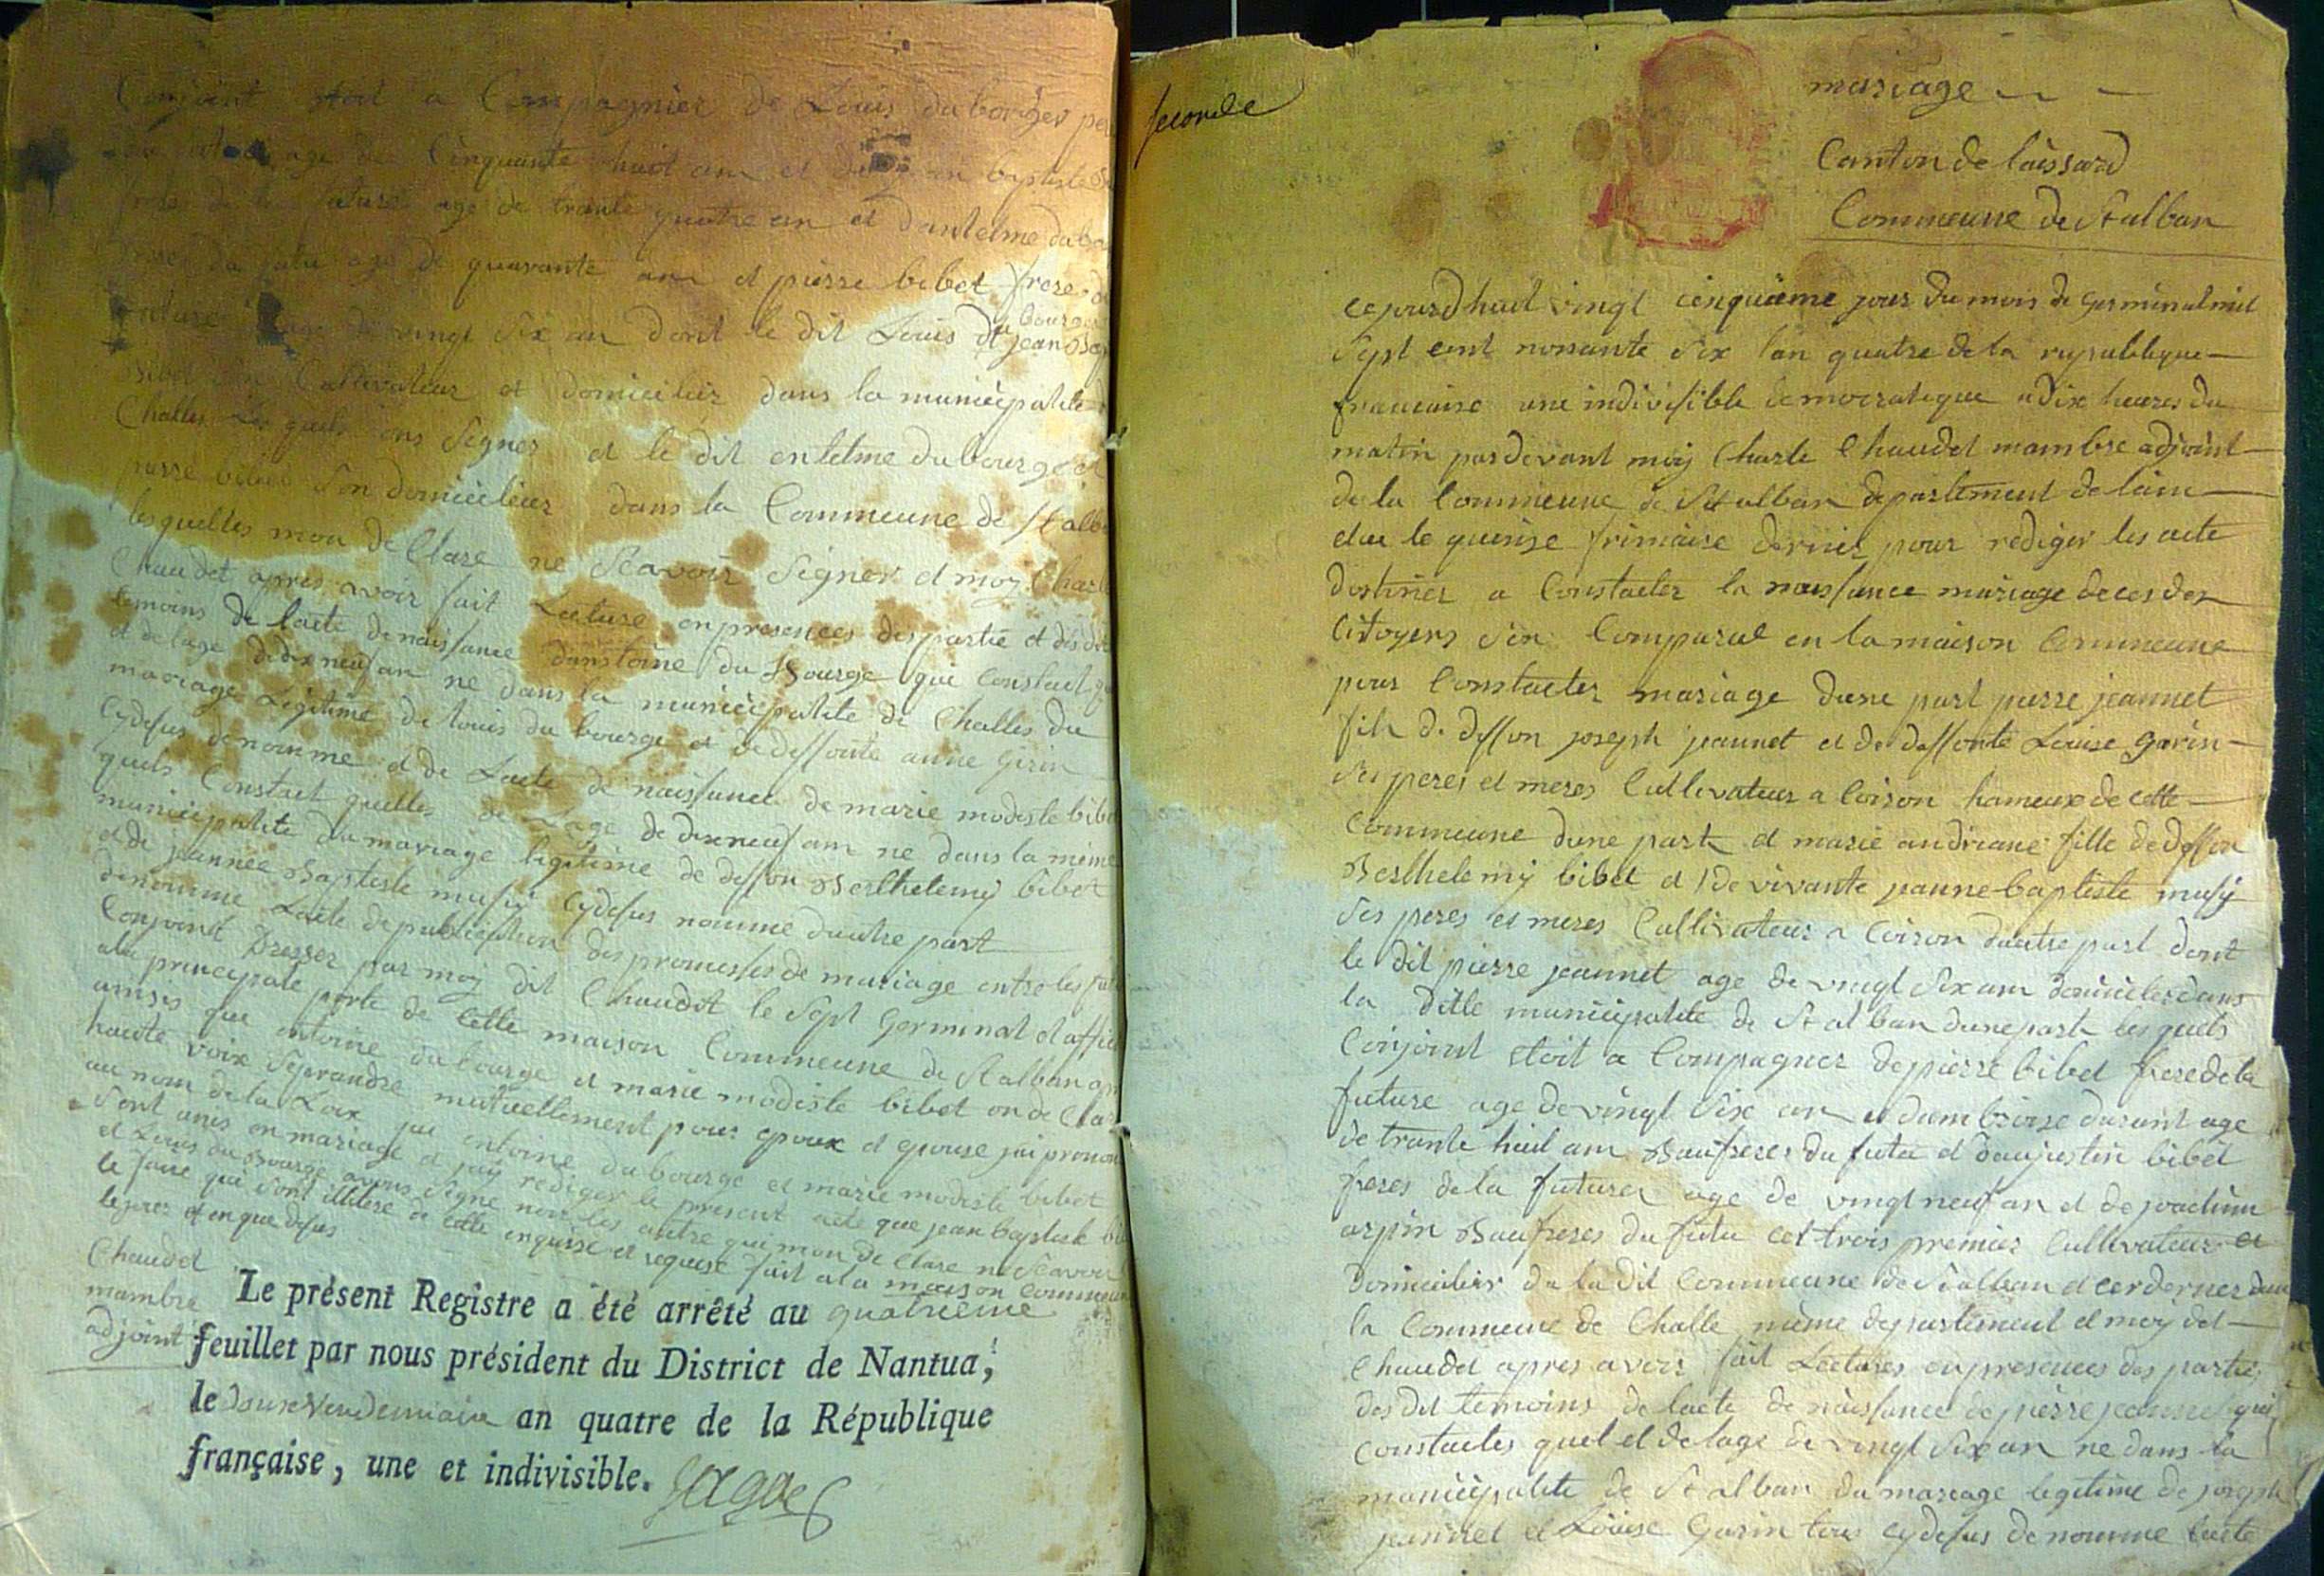 Conjoint etoit a Compagnier de Louis du bourges pere
age de Cinquante huit ans et de jean baptiste
frere de la future age de trante quatre an et dantelme du bou
freres du futu age de quarante ans et pierre bibet frere de
future age de vingt six an dont le dit Louis du bourge et jean bap
Bibet son Cultivateur et domicilier dans la municipalite
Challes Les quels ons signes et le dit entelme du bourge et
pierre bibet son domicilier dans la Commeune de St alb
lesquelles mon de Clare ne Scavoir Signer et moy Charle
Chaudet apres avoir fait Lecture en presences des partie et des dit
temoins de lacte de naissance dantoine du Bourge qui Constact qu
et de lage de dix neuf an ne dans la municipalite de Challes du
mariage Legitime de Louis du bourge et de deffonte anne Girin
cydesus denomme et de Lacte de naissance de marie modeste bibet
quels Constact quelles de Lage de dix neuf ans ne dans la meme
municipalite du mariage legitime de deffon Berthelemy bibet
et de jeannee Baptiste musy cydesus nomme dautre part
denomme Lacte de publication des promesses de mariage entre les futu
Conjoint Dresser par moy dit Chaudet le Sept Germinal et affic
ala principale porte de cette maison Commeune de St alban ap
ainsis que entoine du bourge et marie modeste bibet on de Cla
haute voix Se prandre mutuellement pour epoux et epouse jai pronon
au nom de la Loix que entoine du bourge et marie modeste bibet
Sont unis en mariage et jay rediger le present acte que jean baptiste bi
et Louis du Bourge avons Signe non les autre qui mon de Clare ne Scavoir
le faire qui sont illitere de cette enquise et requise fait a la maison Commeun
les jour et en que desus
Chaudet
mambre
adjoint
Le présent Registre a été arrêté au quatrieme
feuillet par nous président du District de Nantua,
le douze Vendemiaire an quatre de la République
française, une et indivisible.
seconde
mariage
Canton de laissard
Commeune de St alban
cejourdhuit vingt cinquieme jour du mois de Germinal mil
Sept cent nonante Six lan quatre de la republique
francaise une indivisible democratique a Dix heures du
matin par devant moy Charle Chaudet mambre adjoint
de la Commeune de St alban departement de lain
elue le quinse frimaire dernier pour rediger les acte
Destinez a Constacter la naissance mariage deces des
Citoyens Son Comparue en la maison Commeune
pour Constacter mariage dune part pierre jeannet
fils de deffon joseph jeannet et de deffonte Louise Garin
Ses peres et meres Cultivateur a Coison hameux de cette
Commeune dune part et marie andriane fille de deffon
Berthelemy bibet et de vivante janne baptiste musy
Ses peres et meres Cultivateur a Coison dautre part dont
le dit pierre jeannet age de vingt Six ans domicilier dans
la ditte municipalite de St alban dune part les quels
Conjoint etoit a Compagner de pierre bibet frere de la
future age de vingt Six an et dambroise durant age
de trante huit ans Baufreres du futu et daujustin bibet
freres de la futures age de vingt neuf an et de joachim
arpin Baufreres du futu cet trois premier Cultivateur et
domicilier de la dit Commeune de St alban et cer dernier dans
la Commeune de Challe meme departement et moy dit
Chaudet apres avoir fait Lectures en presences des partie
des dit temoins de lacte de naissance de pierre jeannet qui
constactes quel et de lage de vingt Six an ne dans la
municipalite de St alban du mariage legitime de joseph
jeannet et Louise Garin tous cydesus denomme lacte